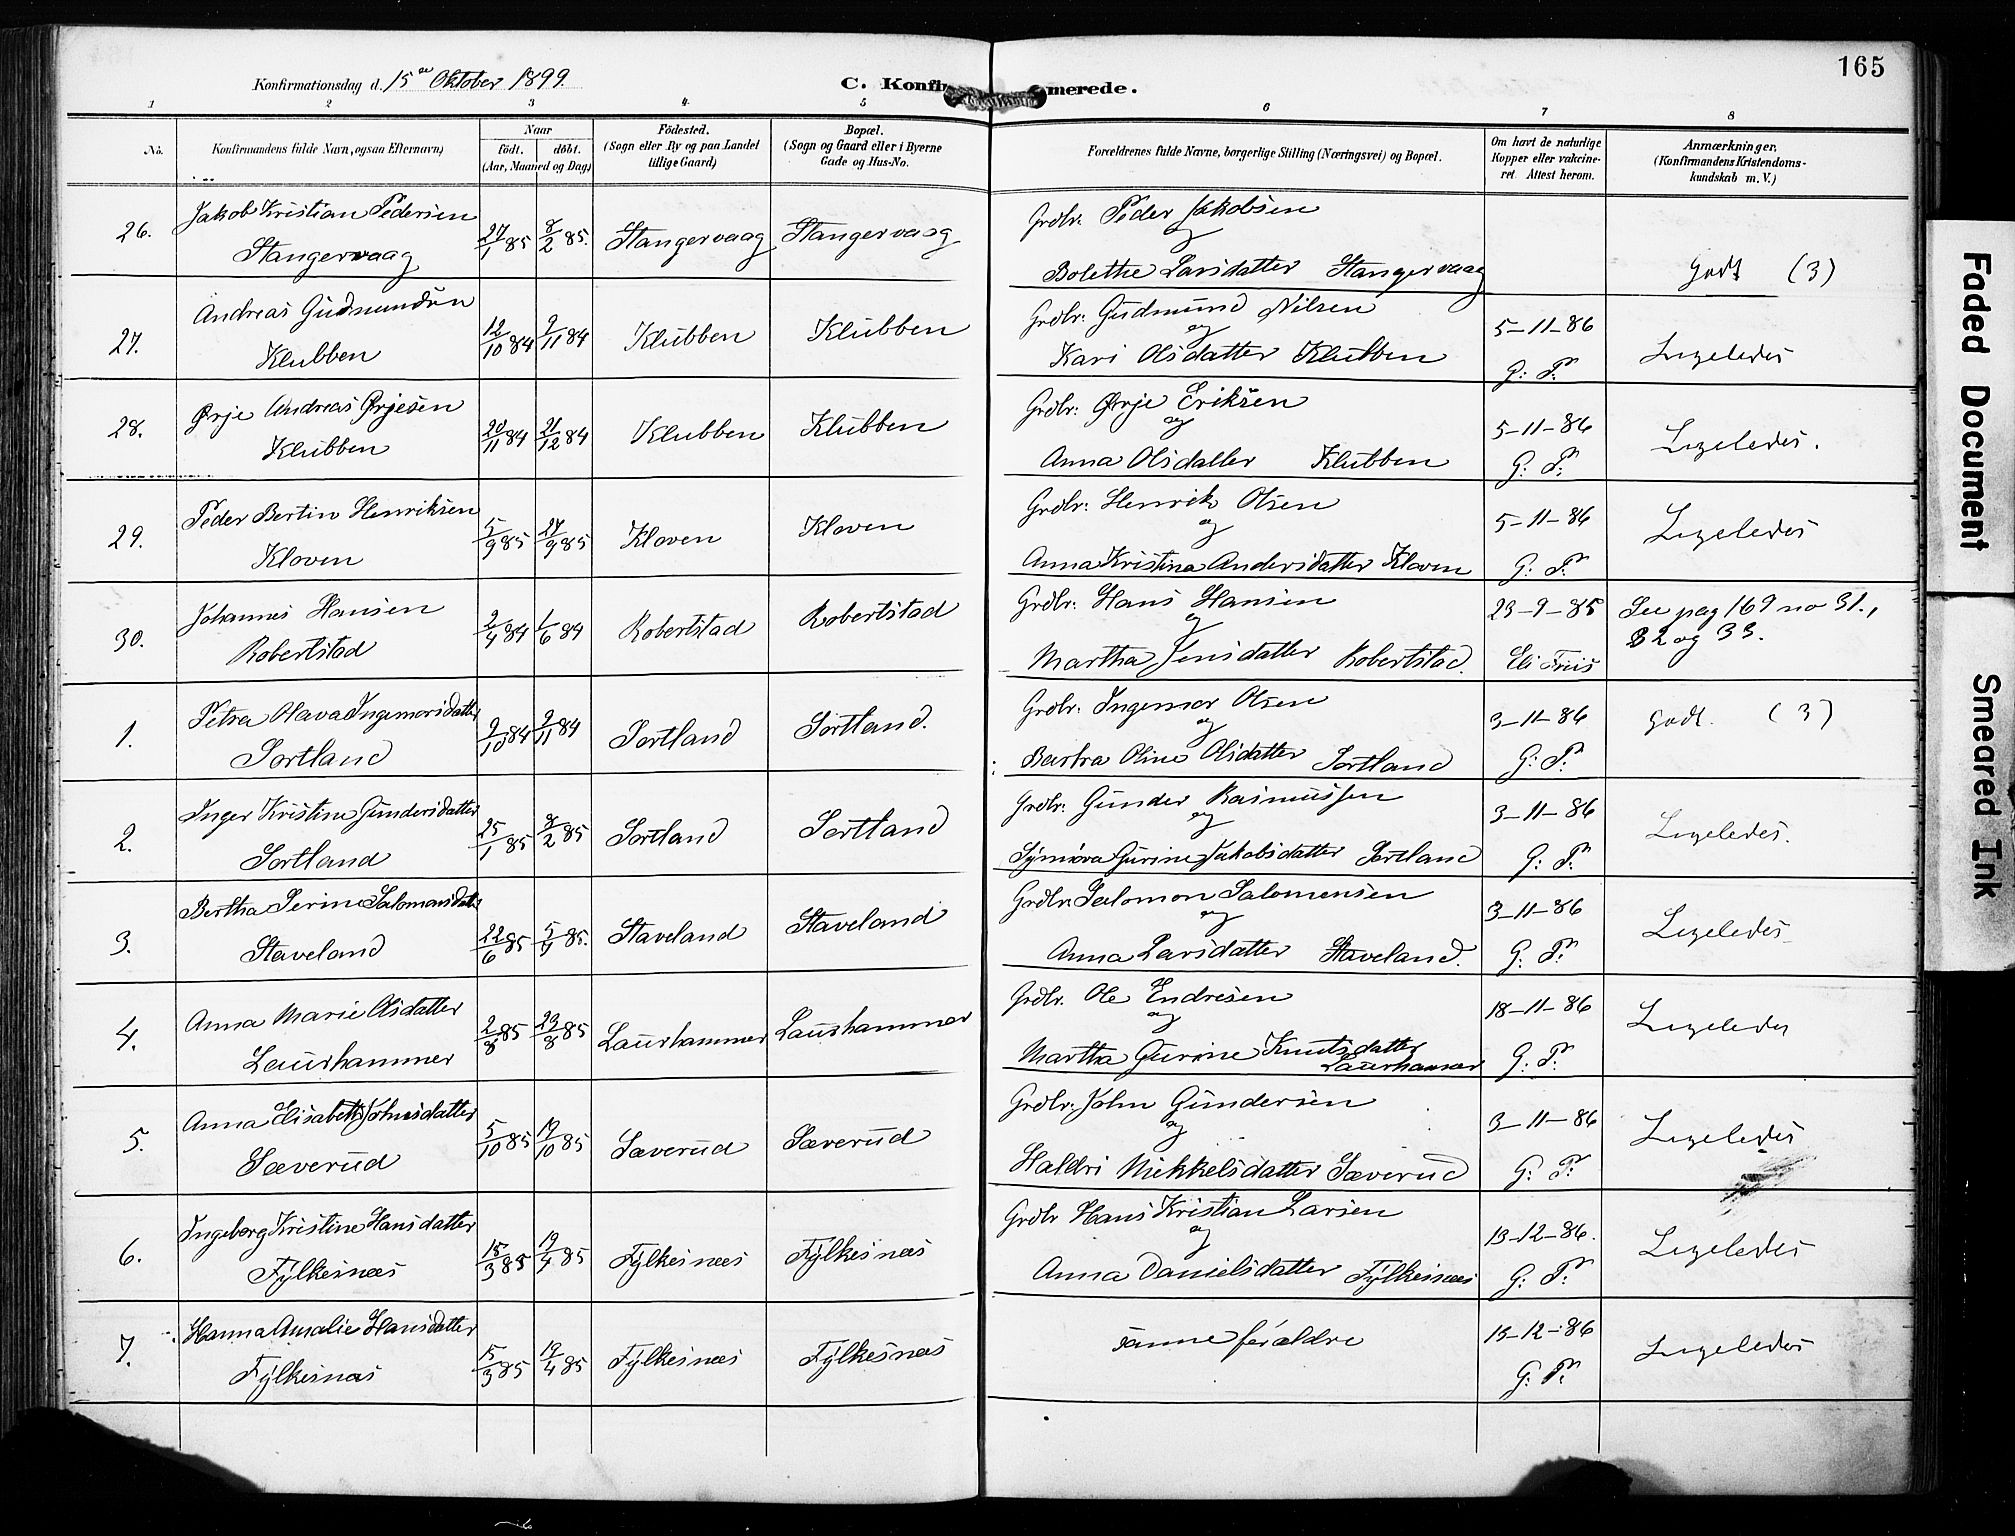 165
Konfirmationsdag d. 15de Oktober 1899.
C. Konfir merede.
1 2 3 4 5 6 7 8
No. Konfirmandens fulde Navn, ogsaa Efternavn) Naar født. døbt. (Aar, Maaned og Dag) Fødested. (Sogn eller By og paa Landet tillige Gaard) Bopæl. (Sogn og Gaard eller i Byerne Gade og Hus-No. Forældrenes fulde Navne, borgerlige Stilling (Næringsvei) og Bopæl. Om havt de naturlige Kopper eller vakcineret. Attest herom. Anmærkninger. (Konfirmandens Kristendomskundskab m. V.)
26. Jakob Kristian Pedersen Stangervaag 27/1 85 8/2 85. Stangervaag Stangervaag Grdbr. Peder Jakobsen og Bolethe Larsdatter Stangervaag Godt (3)
27. Andreas Gudmundsen Klubben 12/10 84 9/11 84 Klubben Klubben Grdbr: Gudmund Nilsen og Kari Olsdatter Klubben 5-11-86 G: Pr: Ligeledes
28. Ørje Andreas Ørjesen Klubben 20/11 84 21/12 84 Klubben Klubben Grdbr: Ørje Eriksen og Anna Olsdatter Klubben 5-11-86 G: Pr: Ligeledes.
29. Peder Bertin Henriksen Kloven 5/9 85 27/9 85 Kloven Kloven Grdbr: Henrik Olsen og Anna Kristina Andersdatter Kloven 5-11-86 G: Pr: Ligeledes
30. Johannes Hansen Robertstad 2/4 84 1/6 84 Robertstad Robertstad Grdbr: Hans Hansen og Martha Jensdatter Robertstad. 23-9-85 Eli Friis See pag 169 no 31., 32 og 33.
1. Petra Olava Ingemarsdatter Sortland 9/10 84 9/11 84 Sortland Sortland. Grdbr. Ingemar Olsen og Bertra Oline Olsdatter Sortland 3-11-86 G: Pr: Godt. (3)
2. Inger Kristine Gundersdatter Sortland 25/1 85 8/2 85 Sortland Sortland Grdbr: Gunder Rasmussen og Synnöva Gurine Jakobsdatter Sortland 3-11-86 G: Pr: Ligeledes.
3. Bertha Serine Salomonsdatr Staveland 22/6 85 5/7 85. Staveland Staveland Grdbr. Salomon Salomonsen og Anna Larsdatter Staveland. 3-11-86 G: Pr: Ligeledes
4. Anna Marie Olsdatter Laurhammer 2/8 85 23/8 85 Laurhammer Laurhammer Grdbr. Ole Endresen og Martha Gurine Knutsdatter Laurhammer 18-11-86 G: Pr: Ligeledes
5. Anna Elisabeth Johnsdatter Sæverud 5/10 85 19/10 85 Sæverud Sæverud Grdbr: John Gundersen og Haldri Mikkelsdatter Sæverud 3-11-86 G: Pr: Ligeledes
6. Ingeborg Kristine Hansdatter Fylkesnæs 15/3 85 19/4 85 Fylkesnæs Fylkesnæs Grdbr Hans Kristian Larsen og Anna Danielsdatter Fylkesnæs 13-12-86. G: Pr: Ligeledes
7. Hanna Amalie Hansdatter Fylkesnæs 15/3 85 19/4 85 Fylkesnæs Fylkesnæs samme forældre 13-12-86 G: Pr: Ligeledes
Faded Document
Smeared Ink